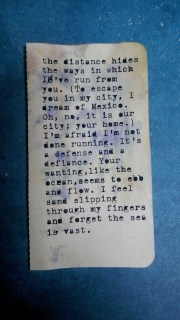 the distance hides
the ways in which
I've run from
you. (To escape
you in my city, I
dream of Mexico.
Oh, no, it is our
city; your home.)
I'm afraid I'm not
done running. It's
a defense and a
defiance. Your
wanting,like the
ocean,seems to ebb
and flow. I feel
sand slipping
through my fingers
and forget the sea
is vast.